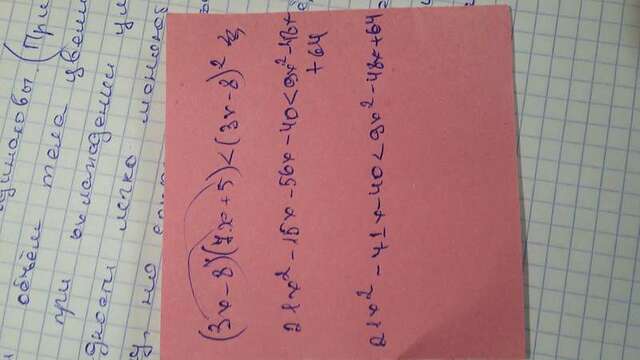 одинаковы. (При
объём тела увели
при охлаждении ум
дности легко меняют
(3x-8)(7x+5)<(3x-8)²
21x²-15x-56x-40<9x²-48x
+64
21x²-41x-40<9x²-48x+64